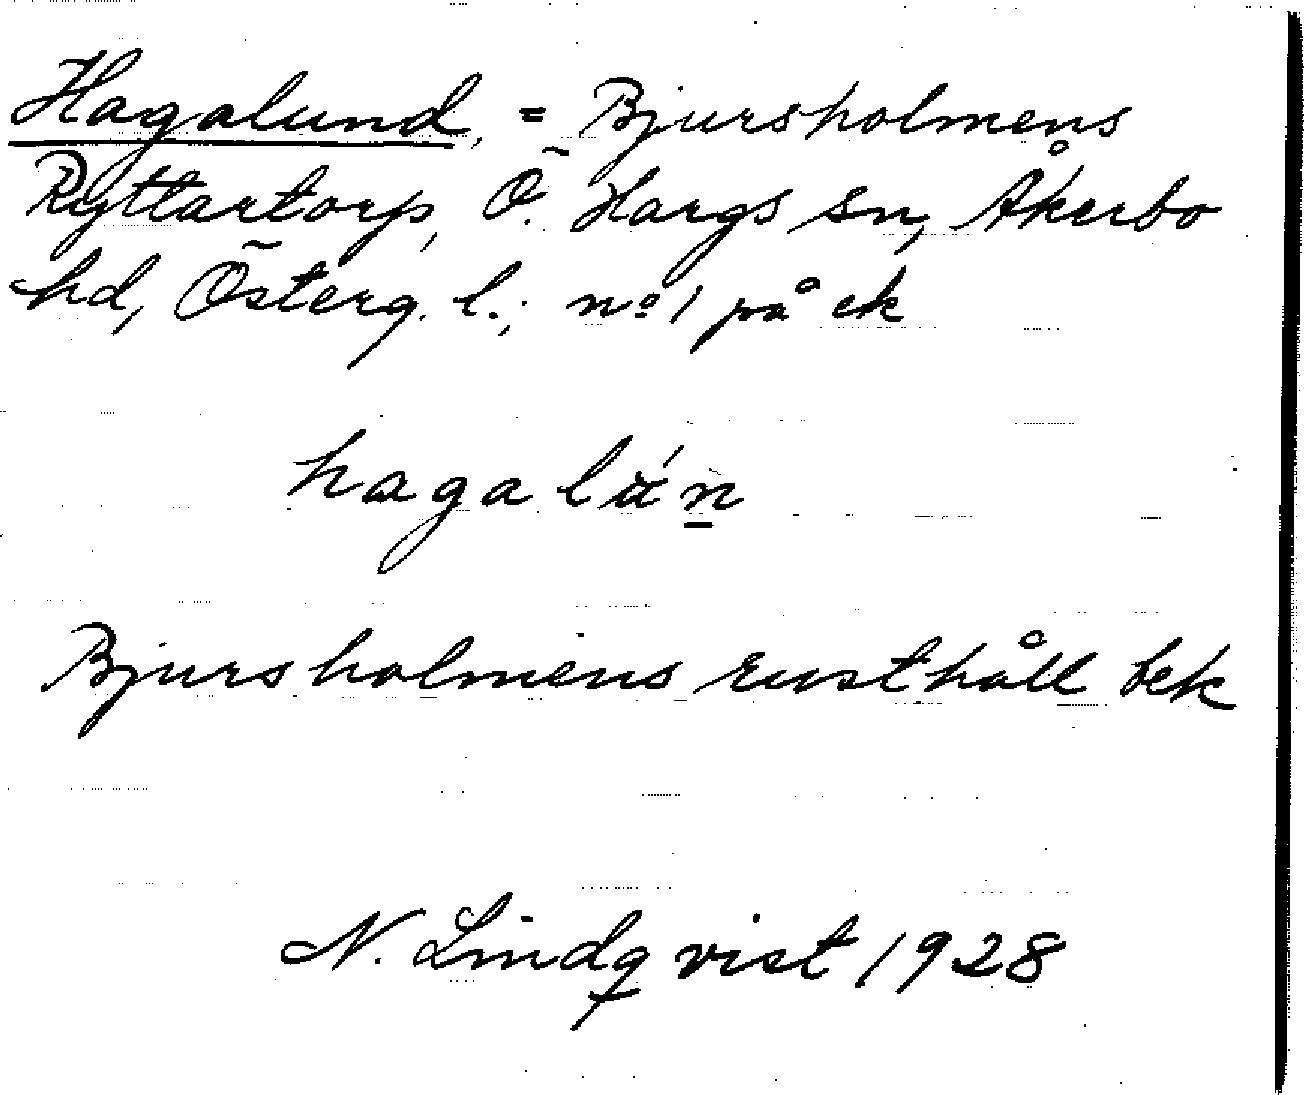 Hagalund, = Bjursholmens
Ryttartorp, Ö. Hargs sn, Åkerbo
hd, Österg. l.; no 1 på ek
hagalún̲
Bjursholmens rusthåll bek
N. Lindqvist 1928